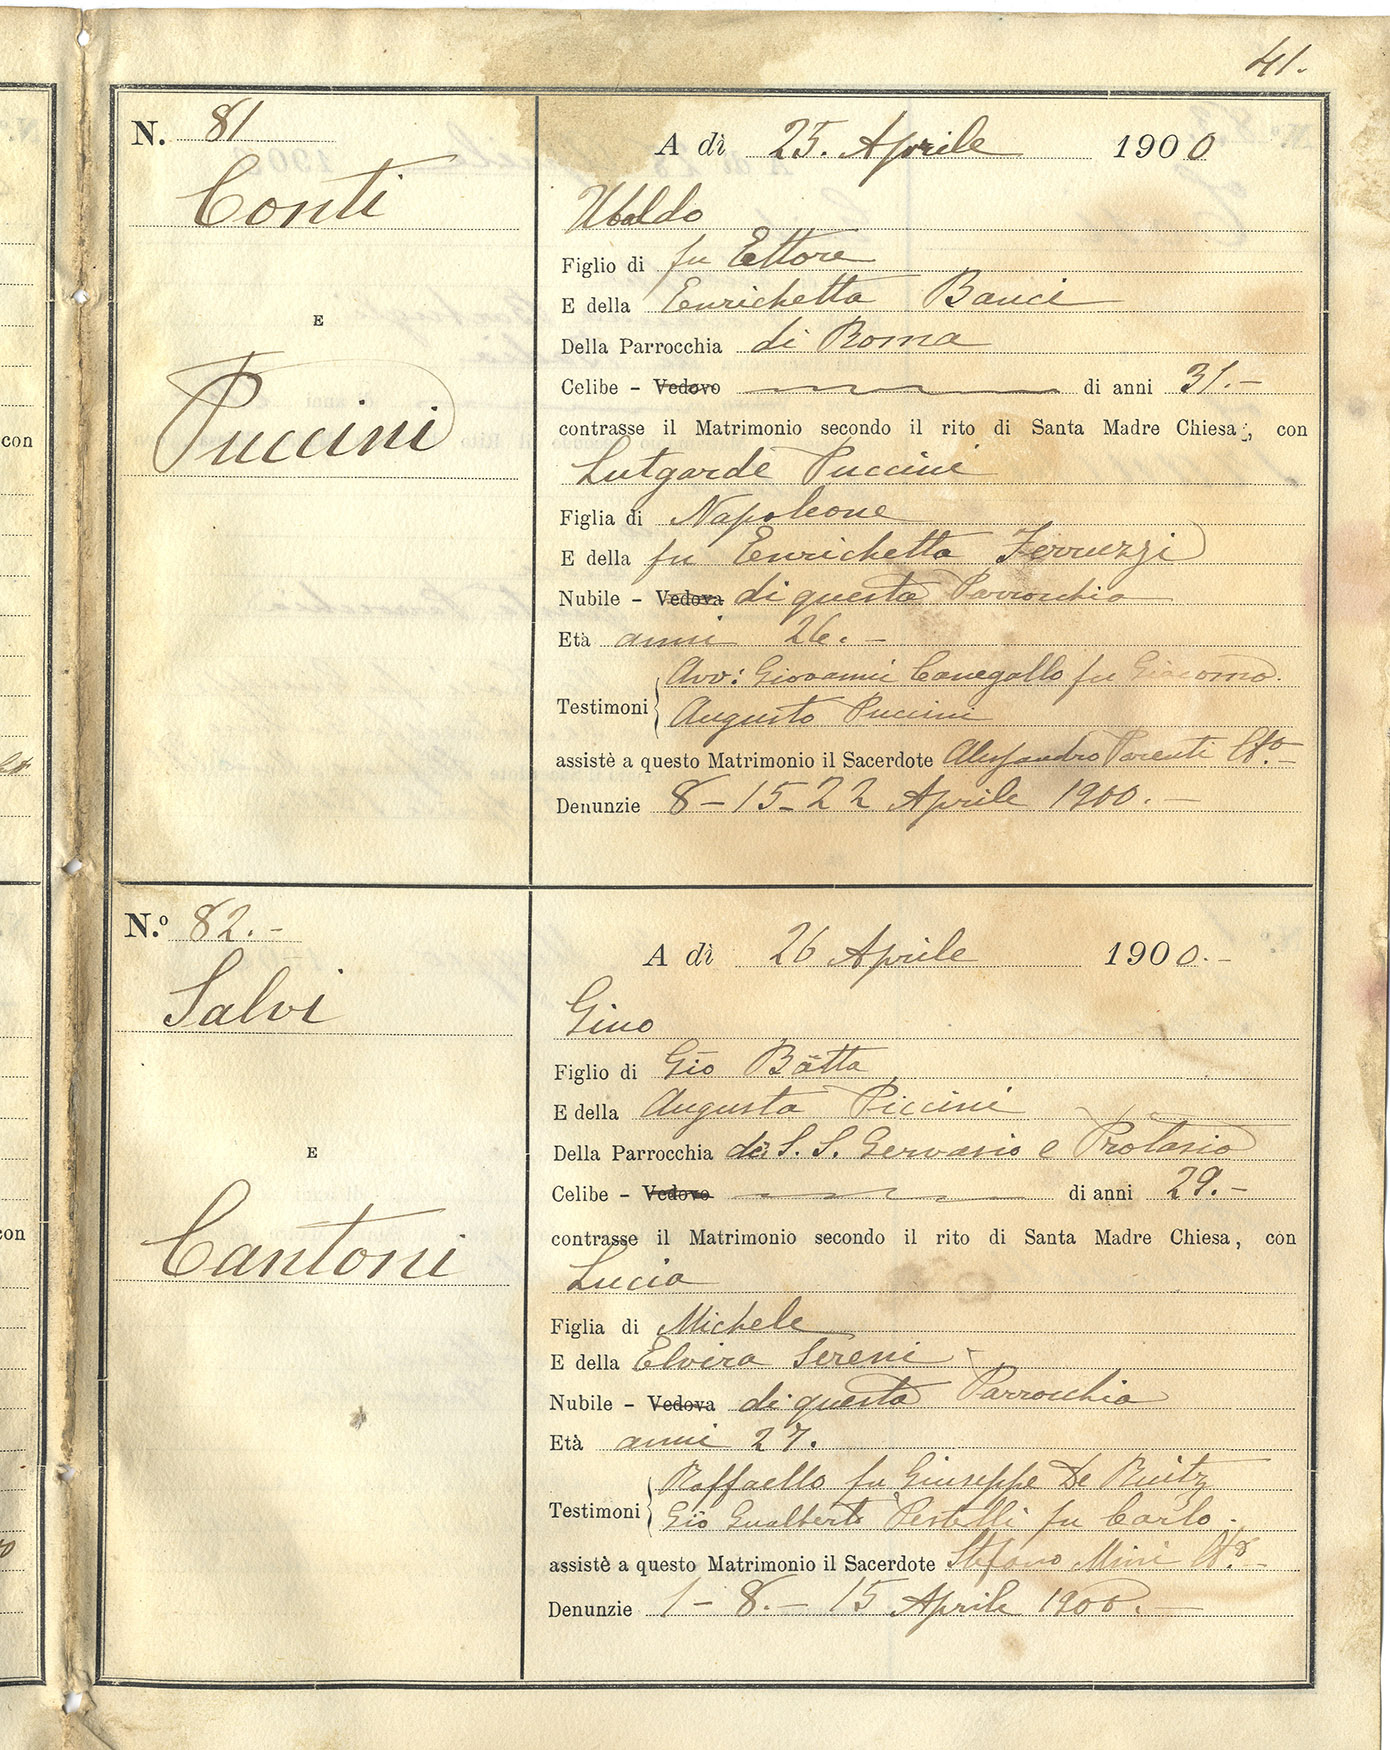 41.
N. 81
Conti
E
Puccini
A dì 25. Aprile 1900
Ubaldo
Figlio di fu Ettore
E della Enrichetta Bauci
Della Parrocchia di Roma
Celibe - Vedovo di anni 31.-
contrasse il Matrimonio secondo il rito di Santa Madre Chiesa, con
Lutgarde Puccini
Figlia di Napoleone
E della fu Enrichetta Ferruzzi
Nubile - Vedova di questa Parrocchia
Età anni 26.-
Avv: Giovanni Canegallo fu Giacomo.
Testimoni
Augusto Puccini
assistè a questo Matrimonio il Sacerdote Alessandro Parenti
Denunzie 8-15-22 Aprile 1900.-
N.º 82.-
Salvi
E
Cantoni
A dì 26 Aprile 1900.-
Gino
Figlio di Gio Batta
E della Augusta Piccini
Della Parrocchia dei S. S. Gervasio e Protasio
Celibe - Vedovo di anni 29.-
contrasse il Matrimonio secondo il rito di Santa Madre Chiesa, con
Lucia
Figlia di Michele
E della Elvira Sereni
Nubile - Vedova di questa Parrocchia
Età anni 27.
Raffaello fu Giuseppe De Ruitz
Testimoni
Gio Gualberto Pestelli fu Carlo.
assistè a questo Matrimonio il Sacerdote Stefano Mini
Denunzie 1-8.-15 Aprile 1900.-
con
con